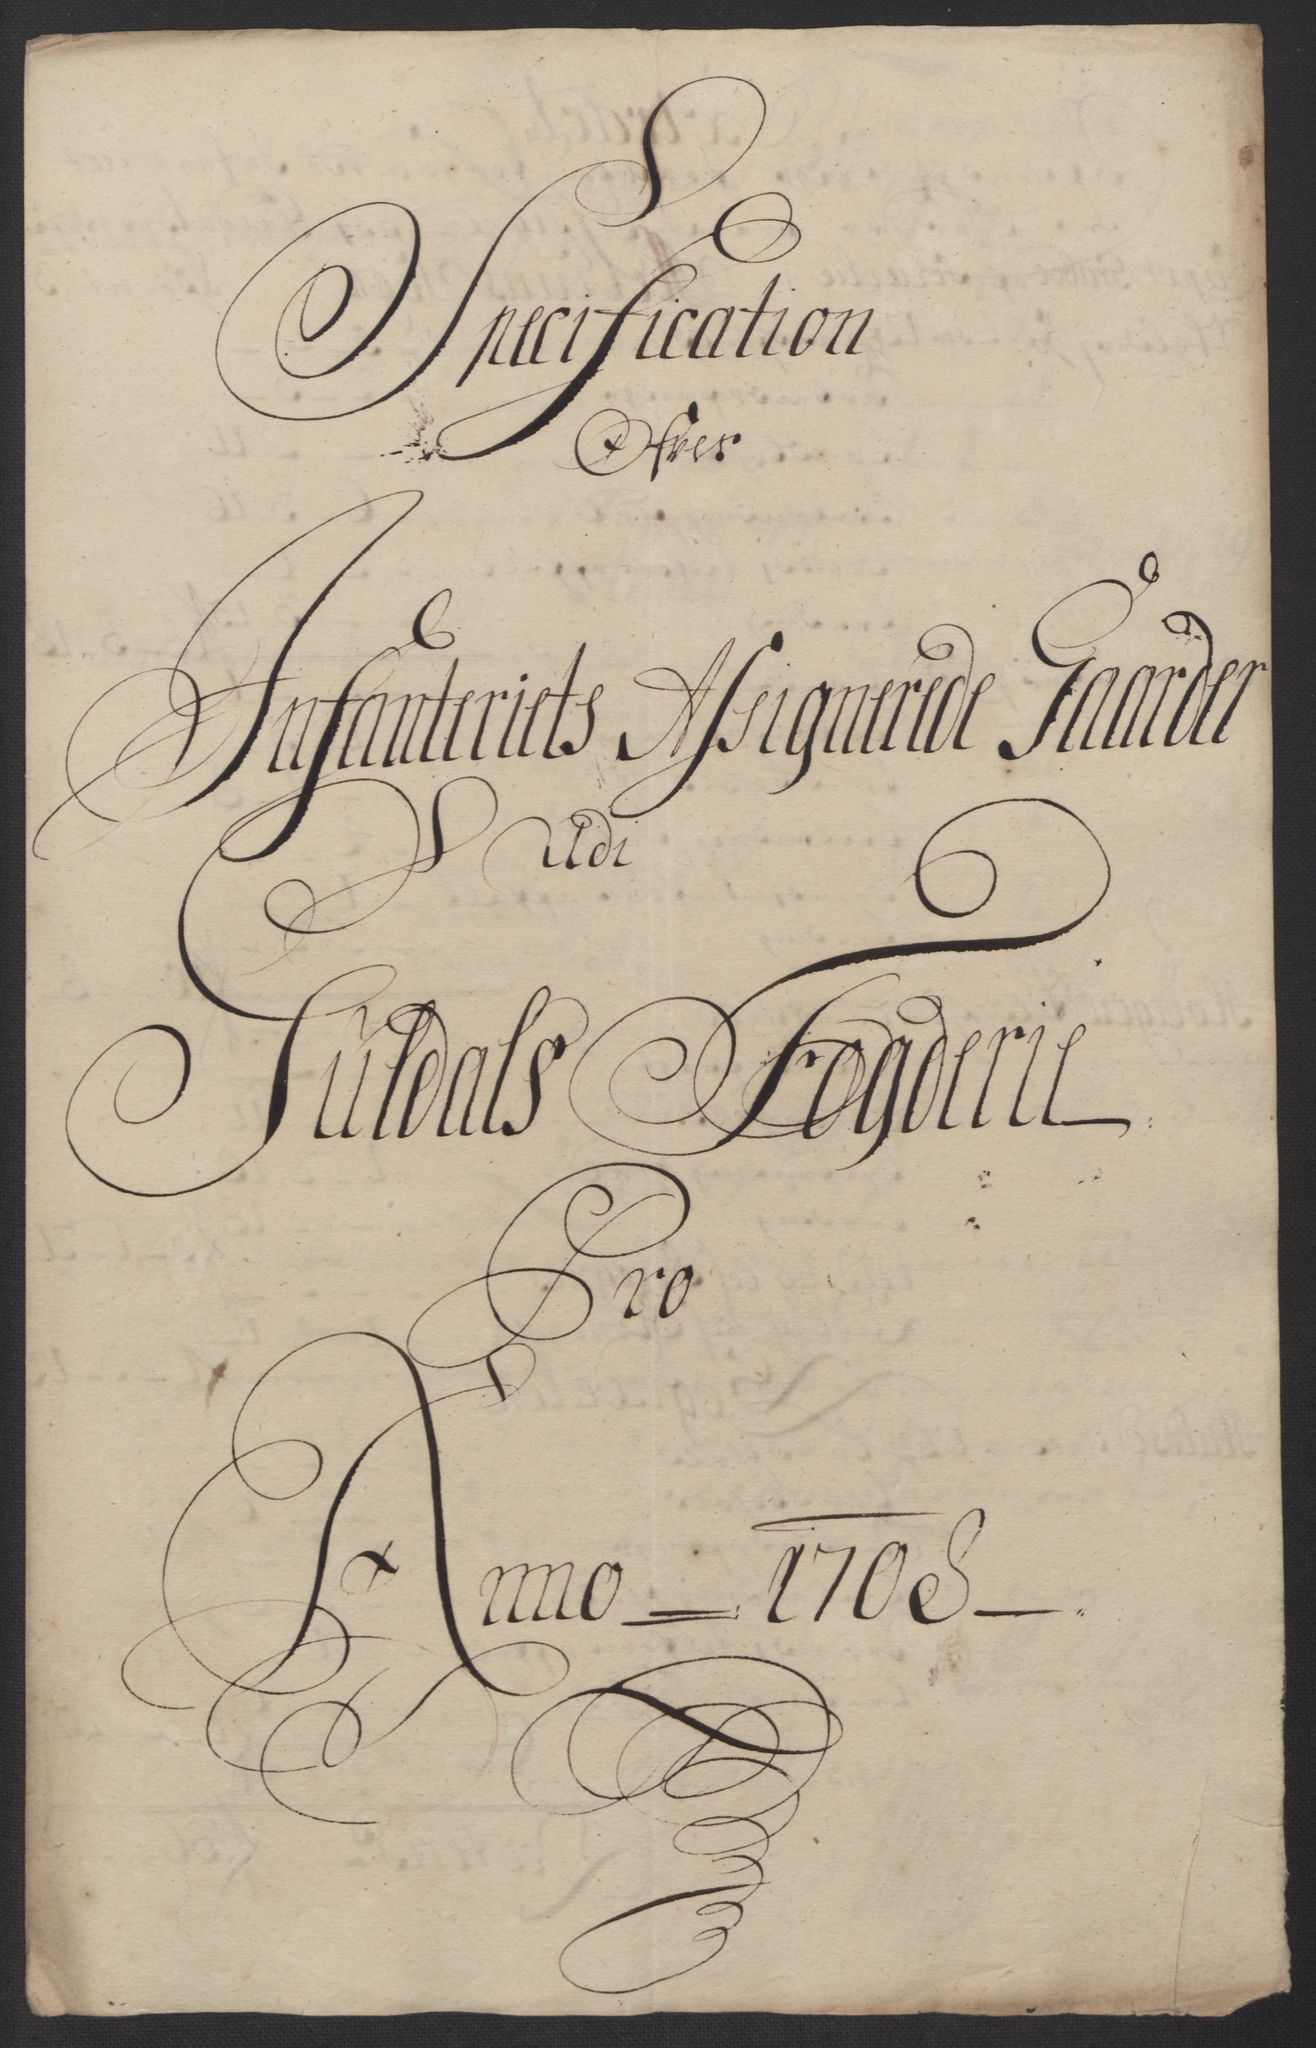 Specification
Ofver
Infanteriets Assignerede Gaarder
Udi
Guldals Fogderie
Pro
Anno 1708